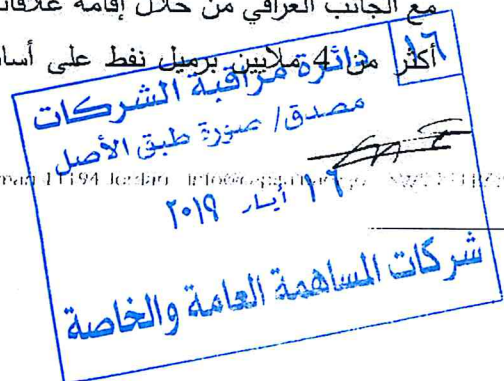 مع الجانب العراقي من خلال إقامة علاقات
أكثر من 4 ملايين برميل نفط على أساس
١٦
دائرة مراقبة الشركات
مصدق/ صورة طبق الأصل
man 11194 Jordan
١٦ أيار ٢٠١٩
شركات المساهمة العامة والخاصة